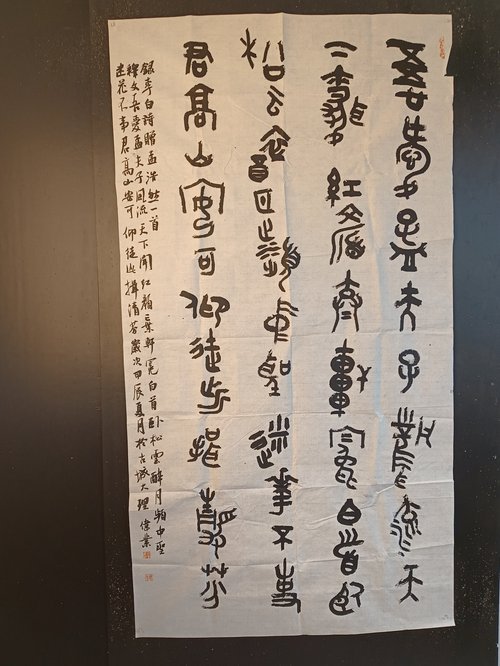 吾愛孟夫子風流天
下聞紅顏棄軒冕白首臥
松雲醉月頻中聖迷花不事
君高山安可仰徒此揖清芬
録李白詩贈孟浩然一首
釋文吾愛孟夫子風流天下聞紅顏棄軒冕白首臥松雲醉月頻中聖
迷花不事君高山安可仰徒此揖清芬歲次甲辰夏月於古城大理偉業